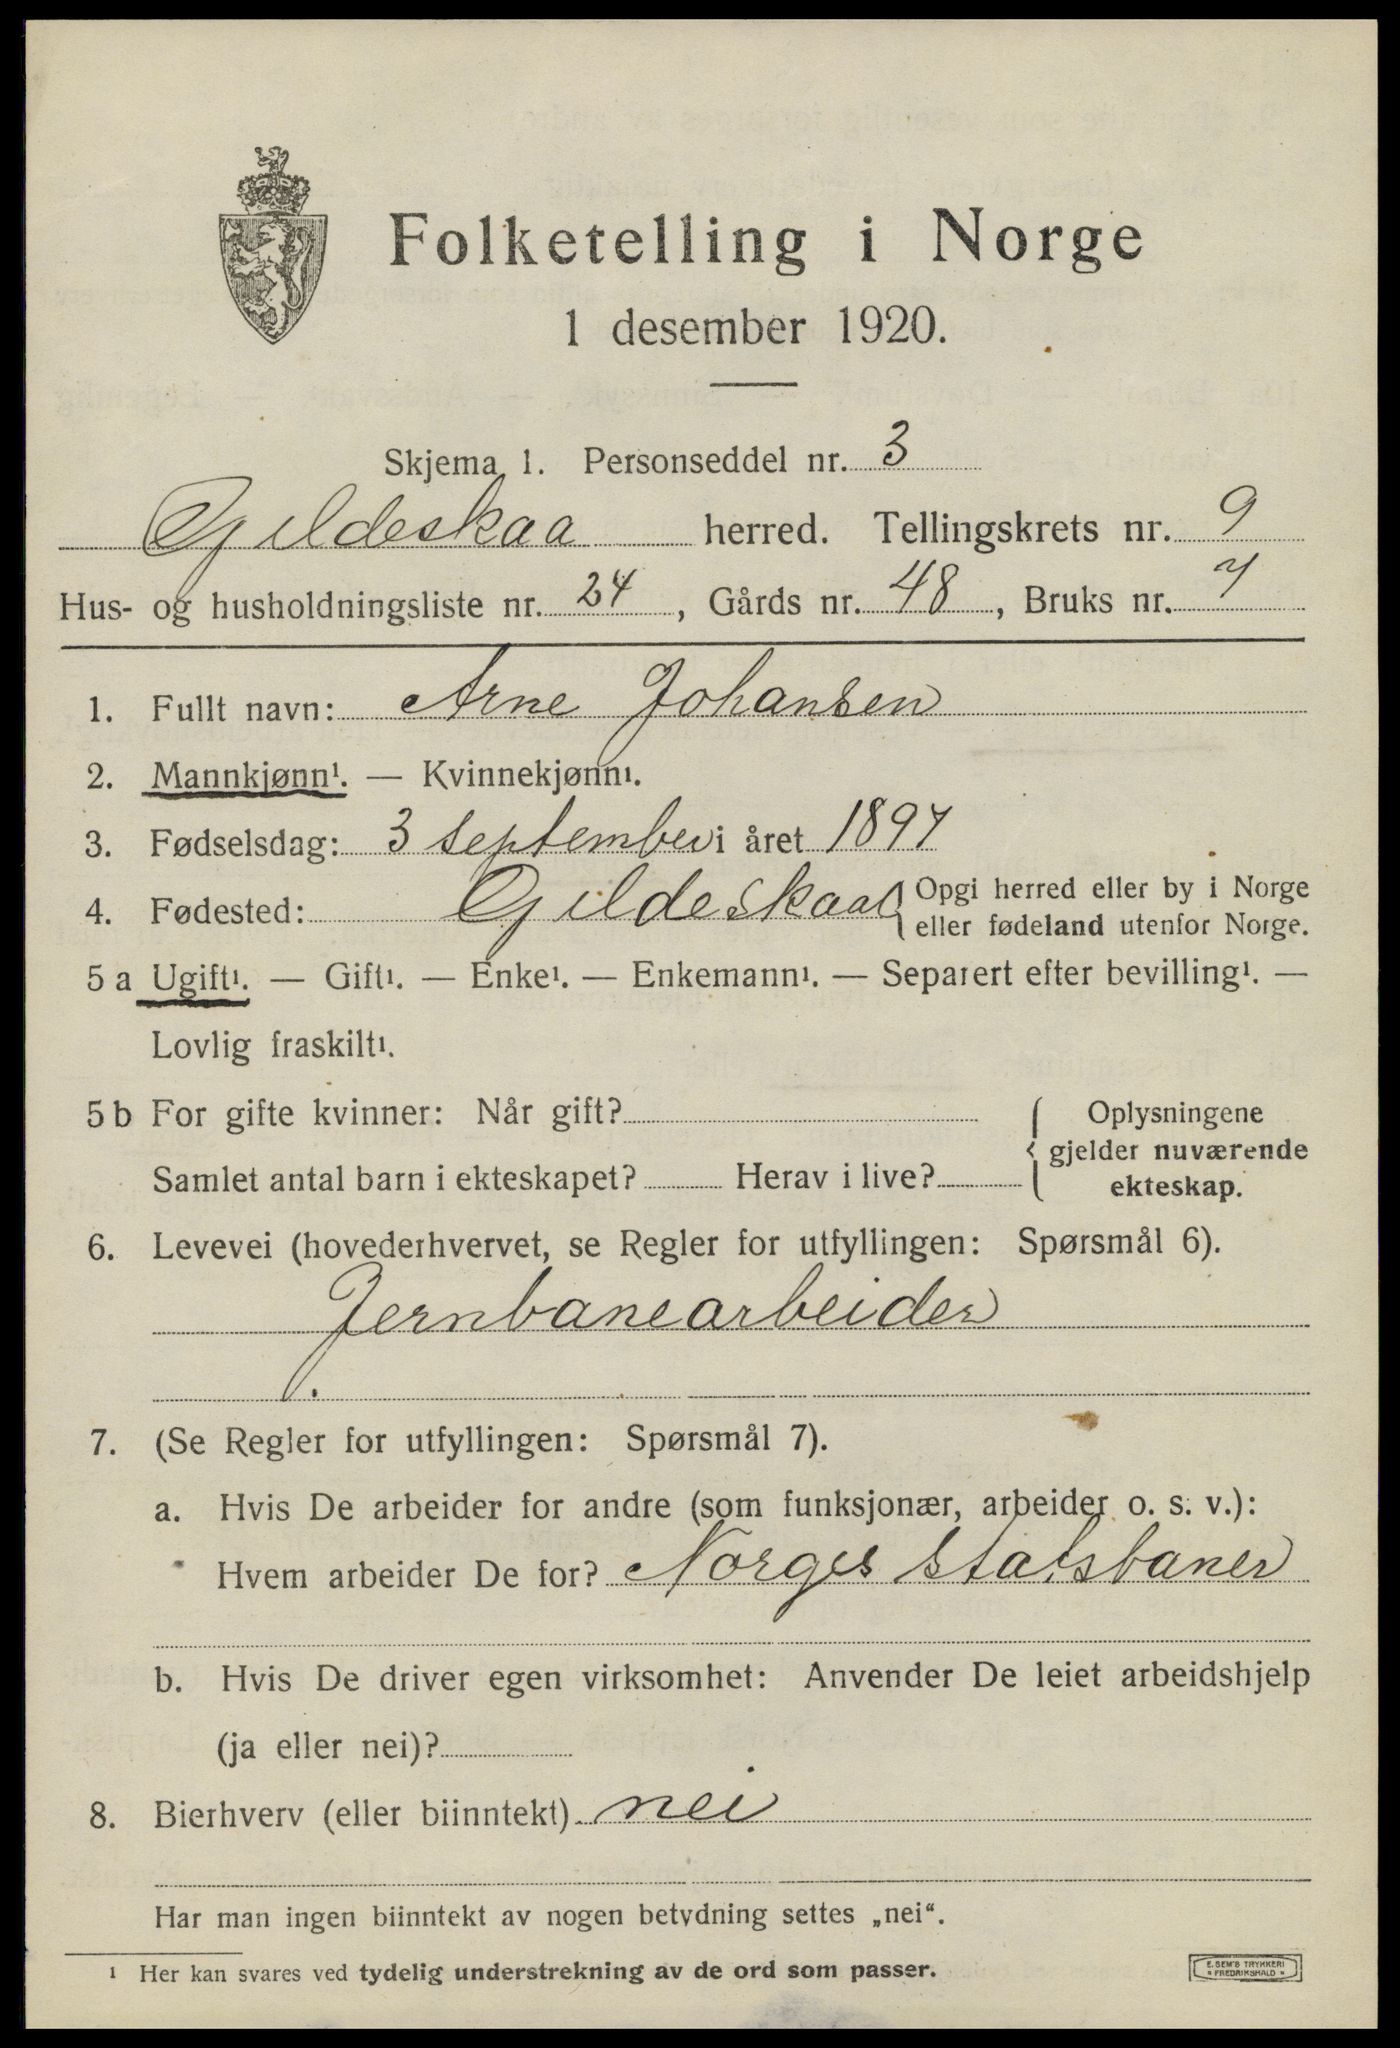 Folketelling i Norge
1 desember 1920.
Skjema 1. Personseddel nr. 3
Gildeskaa herred. Tellingskrets nr. 9
Hus- og husholdningsliste nr. 24, Gårds nr. 48, Bruks nr. 7
1. Fullt navn: Arne Johansen
2. Mannkjønn¹. — Kvinnekjønn¹.
3. Fødselsdag: 3 september i året 1897
4. Fødested: Gildeskaal { Opgi herred eller by i Norge
eller fødeland utenfor Norge.
5 a Ugift¹. — Gift¹. — Enke¹. — Enkemann¹. — Separert efter bevilling¹. —
Lovlig fraskilt¹.
5 b For gifte kvinner: Når gift?
Samlet antal barn i ekteskapet? Herav i live?
{ Oplysningene
gjelder nuværende
ekteskap.
6. Levevei (hovederhvervet, se Regler for utfyllingen: Spørsmål 6).
Jernbanearbeider
7. (Se Regler for utfyllingen: Spørsmål 7).
a. Hvis De arbeider for andre (som funksjonær, arbeider o. s. v.):
Hvem arbeider De for? Norges statsbaner
b. Hvis De driver egen virksomhet: Anvender De leiet arbeidshjelp
(ja eller nei)?
8. Bierhverv (eller biinntekt) nei
Har man ingen biinntekt av nogen betydning settes „nei“.
¹ Her kan svares ved tydelig understrekning av de ord som passer.
E. SEM'S TRYKKERI
FREDRIKSHALD